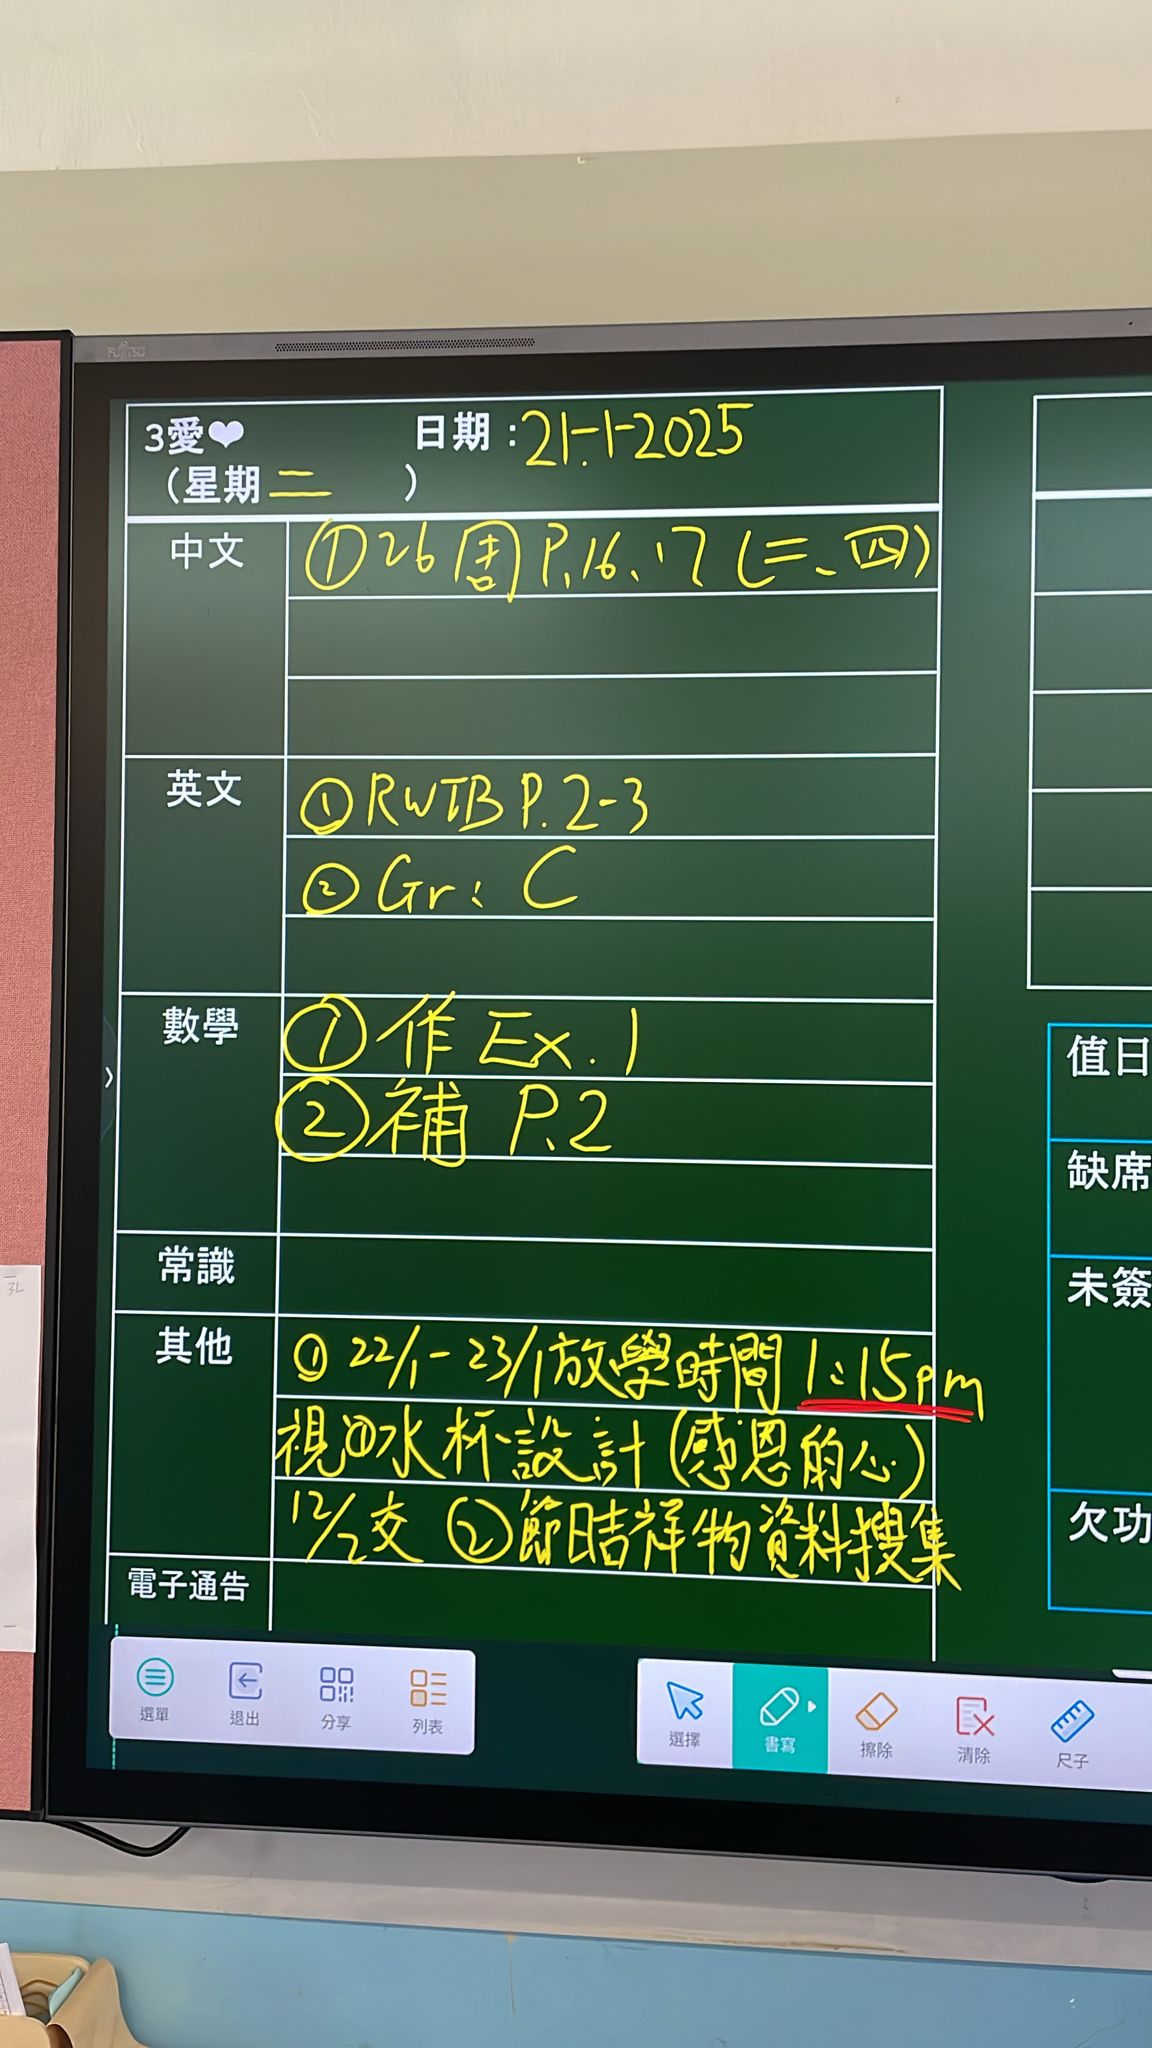 FUJITSU
3愛❤ 日期:21-1-2025
(星期二 )
中文 ①26周 P.16、17 (三、四)
英文 ① RWTB P.2-3
② Gr: C
數學 ① 作 Ex. 1
② 補 P.2
常識
其他 ① 22/1-23/1放學時間 1:15pm
視①水杯設計(感恩的心)
12/2交 ②節日吉祥物資料搜集
電子通告
值日
缺席
未簽
欠功
3L
選單 退出 分享 列表
選擇 書寫 擦除 清除 尺子